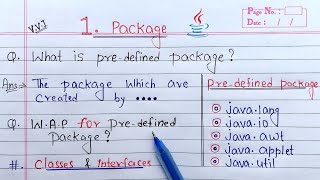 V.V.I
1. Package
Page No. :
Date : / /
Q. What is pre-defined package?
Ans→ The package which are
created by ....
Q. W.A.P for Pre-defined
Package?
#. Classes & Interfaces
Pre-defined package
java.lang
java.io
java.awt
java.applet
java.util